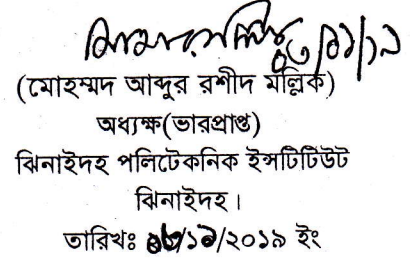 (মোহম্মদ আব্দুর রশীদ মল্লিক)
অধ্যক্ষ(ভারপ্রাপ্ত)
ঝিনাইদহ পলিটেকনিক ইন্সটিটিউট
ঝিনাইদহ।
তারিখঃ /২০১৯ ইং